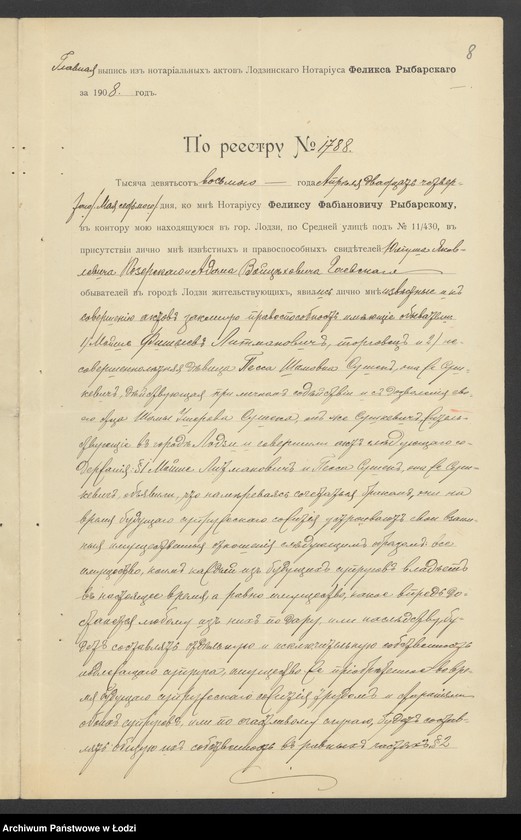 8
Главная выпись изъ нотаріальныхъ актовъ Лодзинскаго Нотаріуса Феликса Рыбарскаго
за 1908. годъ.
По реестру № 1788.
Тысяча девятьсотъ восьмого — года Апрѣля двадцать четвер-
таго /Мая седьмого/ дня, ко мнѣ Нотаріусу Феликсу Фабіановичу Рыбарскому,
въ контору мою находящуюся въ гор. Лодзи, по Средней улицѣ подъ № 11/430, въ
присутствіи лично мнѣ извѣстныхъ и правоспособныхъ свидѣтелей Юліуша Яков-
левича Козерскаго и Адама Войцѣховича
обывателей въ городѣ Лодзи жительствующихъ, явились лично мнѣ извѣстные и къ
совершенію актовъ законную правоспособность имѣющіе обыватели
1/ Мойше Фишелевъ Литмановичъ, торговецъ и 2/ не-
совершеннолѣтняя дѣвица Песса Шамовна Сушкевичъ, она же Суш-
кевичъ, дѣйствующая при личномъ содѣйствіи и съ дозволенія сво-
его отца Шамы Сушкевича, житель-
ствующіе въ городѣ Лодзи и совершили актъ слѣдующаго со-
держанія: §1/ Мойше Литмановичъ и Песса она же Суш-
кевичъ, объявили, что намѣреваясь сочетаться бракомъ, они на
время будущаго супружескаго сожитія устраиваютъ свои взаим-
ныя имущественныя отношенія слѣдующимъ образомъ: все
имущество, какимъ каждый изъ будущихъ супруговъ владѣетъ
въ настоящее время а равно имущество, какое впредь до-
станется любому изъ нихъ по дару или наслѣдству бу-
детъ составлять отдѣльную и исключительную собственность
надлежащаго супруга, имущество же пріобрѣтенное во вре-
мя будущаго супружескаго сожитія трудомъ и стараніями
обоихъ супруговъ, или по счастливому случаю, будетъ состав-
лять общую ихъ собственность въ равныхъ частяхъ. §2
Archiwum Państwowe w Łodzi